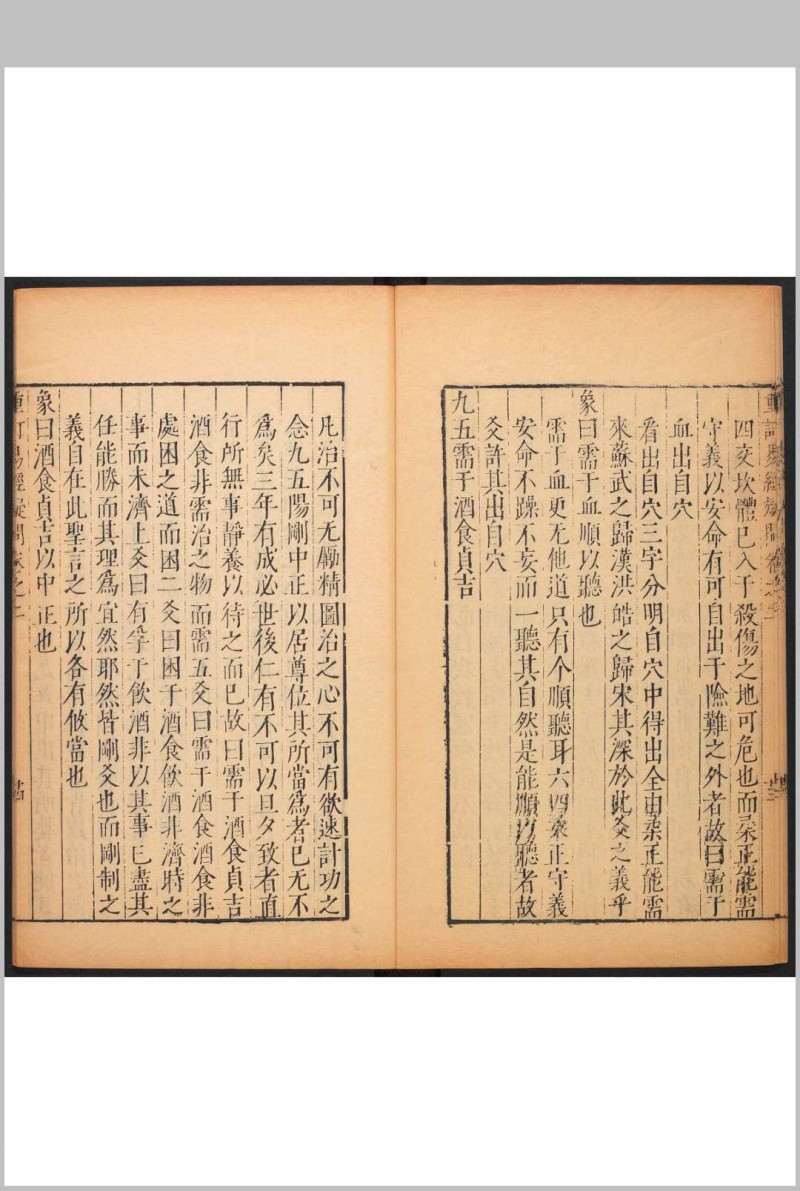 重訂易經疑問 卷之二 廿三
四交坎體已入于殺傷之地可危也而柔正能需
守義以安命有可自出于險難之外者故曰需于
血出自穴
看出自穴三字分明自穴中得出全由柔正能需
來蘇武之歸漢洪皓之歸宋其深於此爻之義乎
象曰需于血順以聽也
需于血更无他道只有个順聽耳六四柔正守義
安命不躁不妄而一聽其自然是能順以聽者故
爻許其出自穴
九五需于酒食貞吉
凡治不可无勵精圖治之心不可有欲速計功之
念九五陽剛中正以居尊位其所當爲者已无不
爲矣三年有成必世後仁有不可以旦夕致者直
行所無事靜養以待之而已故曰需于酒食貞吉
酒食非需治之物而需五爻曰需于酒食酒食非
處困之道而困二爻曰困于酒食飲酒非濟時之
事而未濟上爻曰有孚于飲酒非以其事已盡其
任能勝而其理爲宜然耶然皆剛爻也而剛制之
義自在此聖言之所以各有攸當也
象曰酒食貞吉以中正也
重訂易經疑問 卷之二 廿四